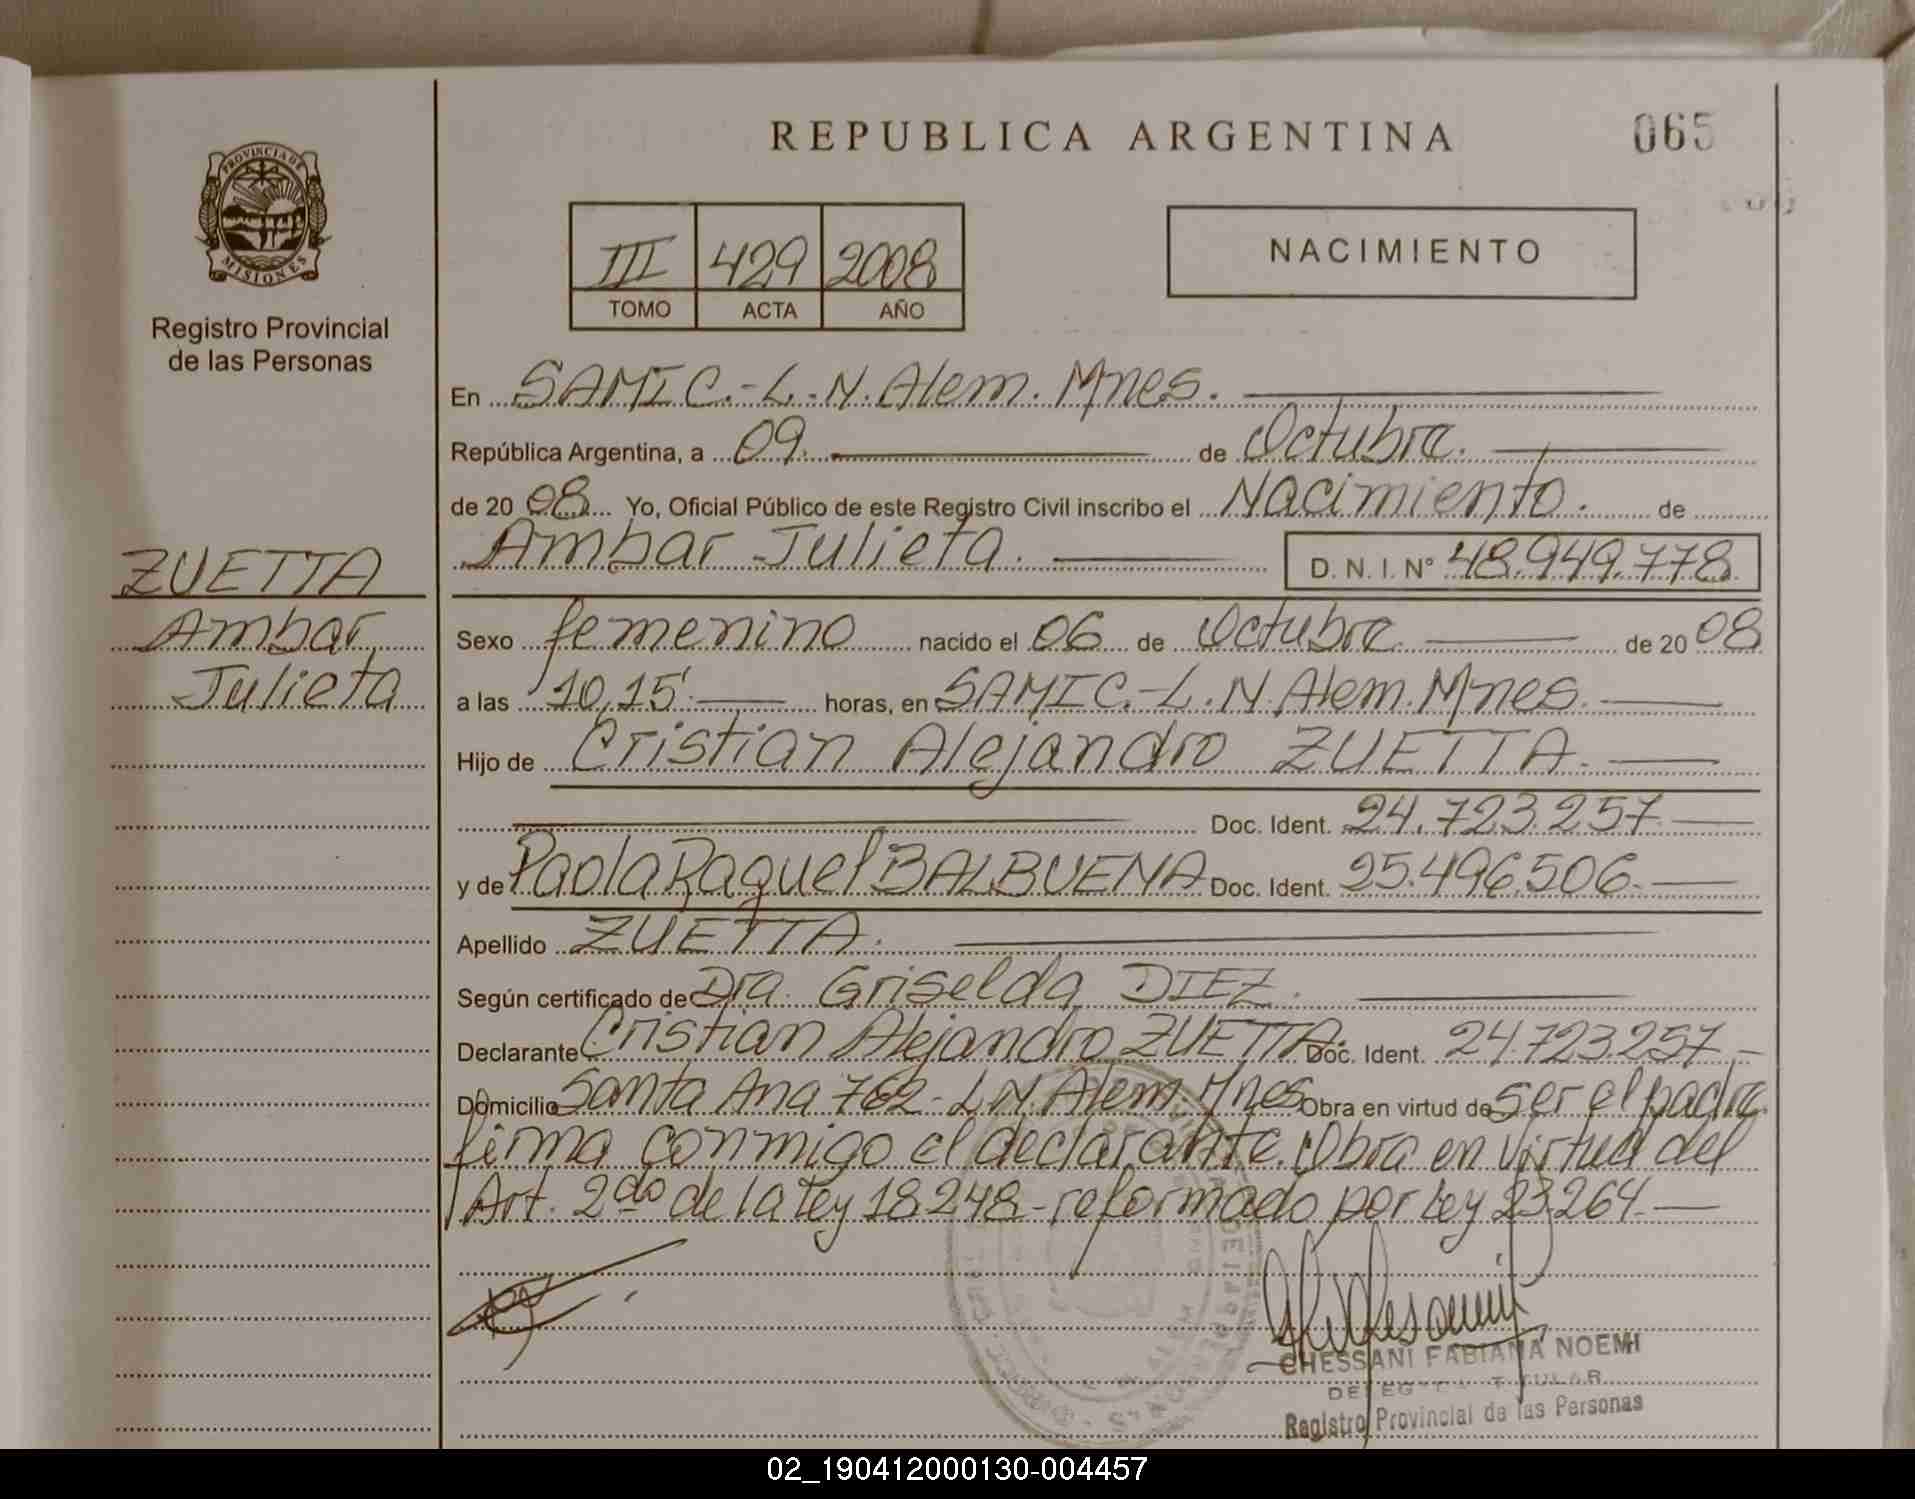 REPUBLICA ARGENTINA
065
PROVINCIA DE
MISIONES
Registro Provincial
de las Personas
III 429 2008
TOMO ACTA AÑO
NACIMIENTO
En SAMIC.-L.N.Alem.Mnes.
República Argentina, a 09 de Octubre.
de 2008 Yo, Oficial Público de este Registro Civil inscribo el Nacimiento. de
Ambar Julieta. D. N. I. N° 48.949.778
ZUETTA
Ambar
Julieta
Sexo femenino nacido el 06 de Octubre de 2008
a las 10,15' horas, en SAMIC.-L.N.Alem.Mnes.
Hijo de Cristian Alejandro ZUETTA.
Doc. Ident. 24.723.257
y de Paola Raquel BALBUENA Doc. Ident. 25.496.506.
Apellido ZUETTA.
Según certificado de Dra. Griselda DIEZ.
Declarante Cristian Alejandro ZUETTA. Doc. Ident. 24.723.257
Domicilio Santa Ana 762-L.N.Alem.Mnes Obra en virtud de ser el padre
firma conmigo el declarante. Obra en virtud del
Art. 2do de la ley 18.248-reformado por ley 23.264.
CHESSANI FABIANA NOEMI
DELEGADA TITULAR
Registro Provincial de las Personas
02_190412000130-004457